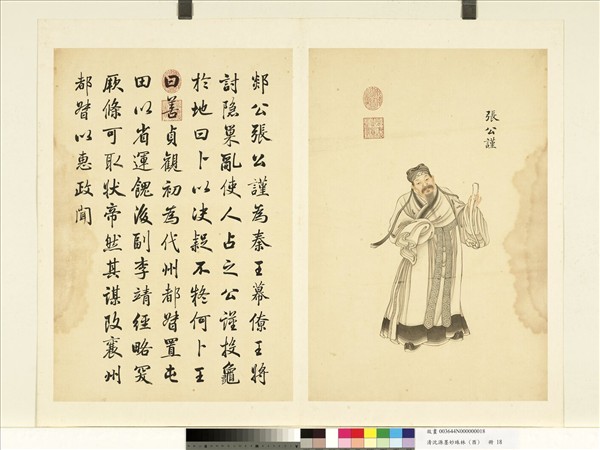 張公謹
郯公張公謹為秦王幕僚王將
討隐巢亂使人占之公謹投龜
於地曰卜以决疑不疑何卜王
曰善貞觀初為代州都督置屯
田以省運餽後副李靖經略突
厥條可取狀帝然其謀改襄州
都督以惠政聞
故畫 003644N000000018
清沈源墨妙珠林（酉） 冊 18